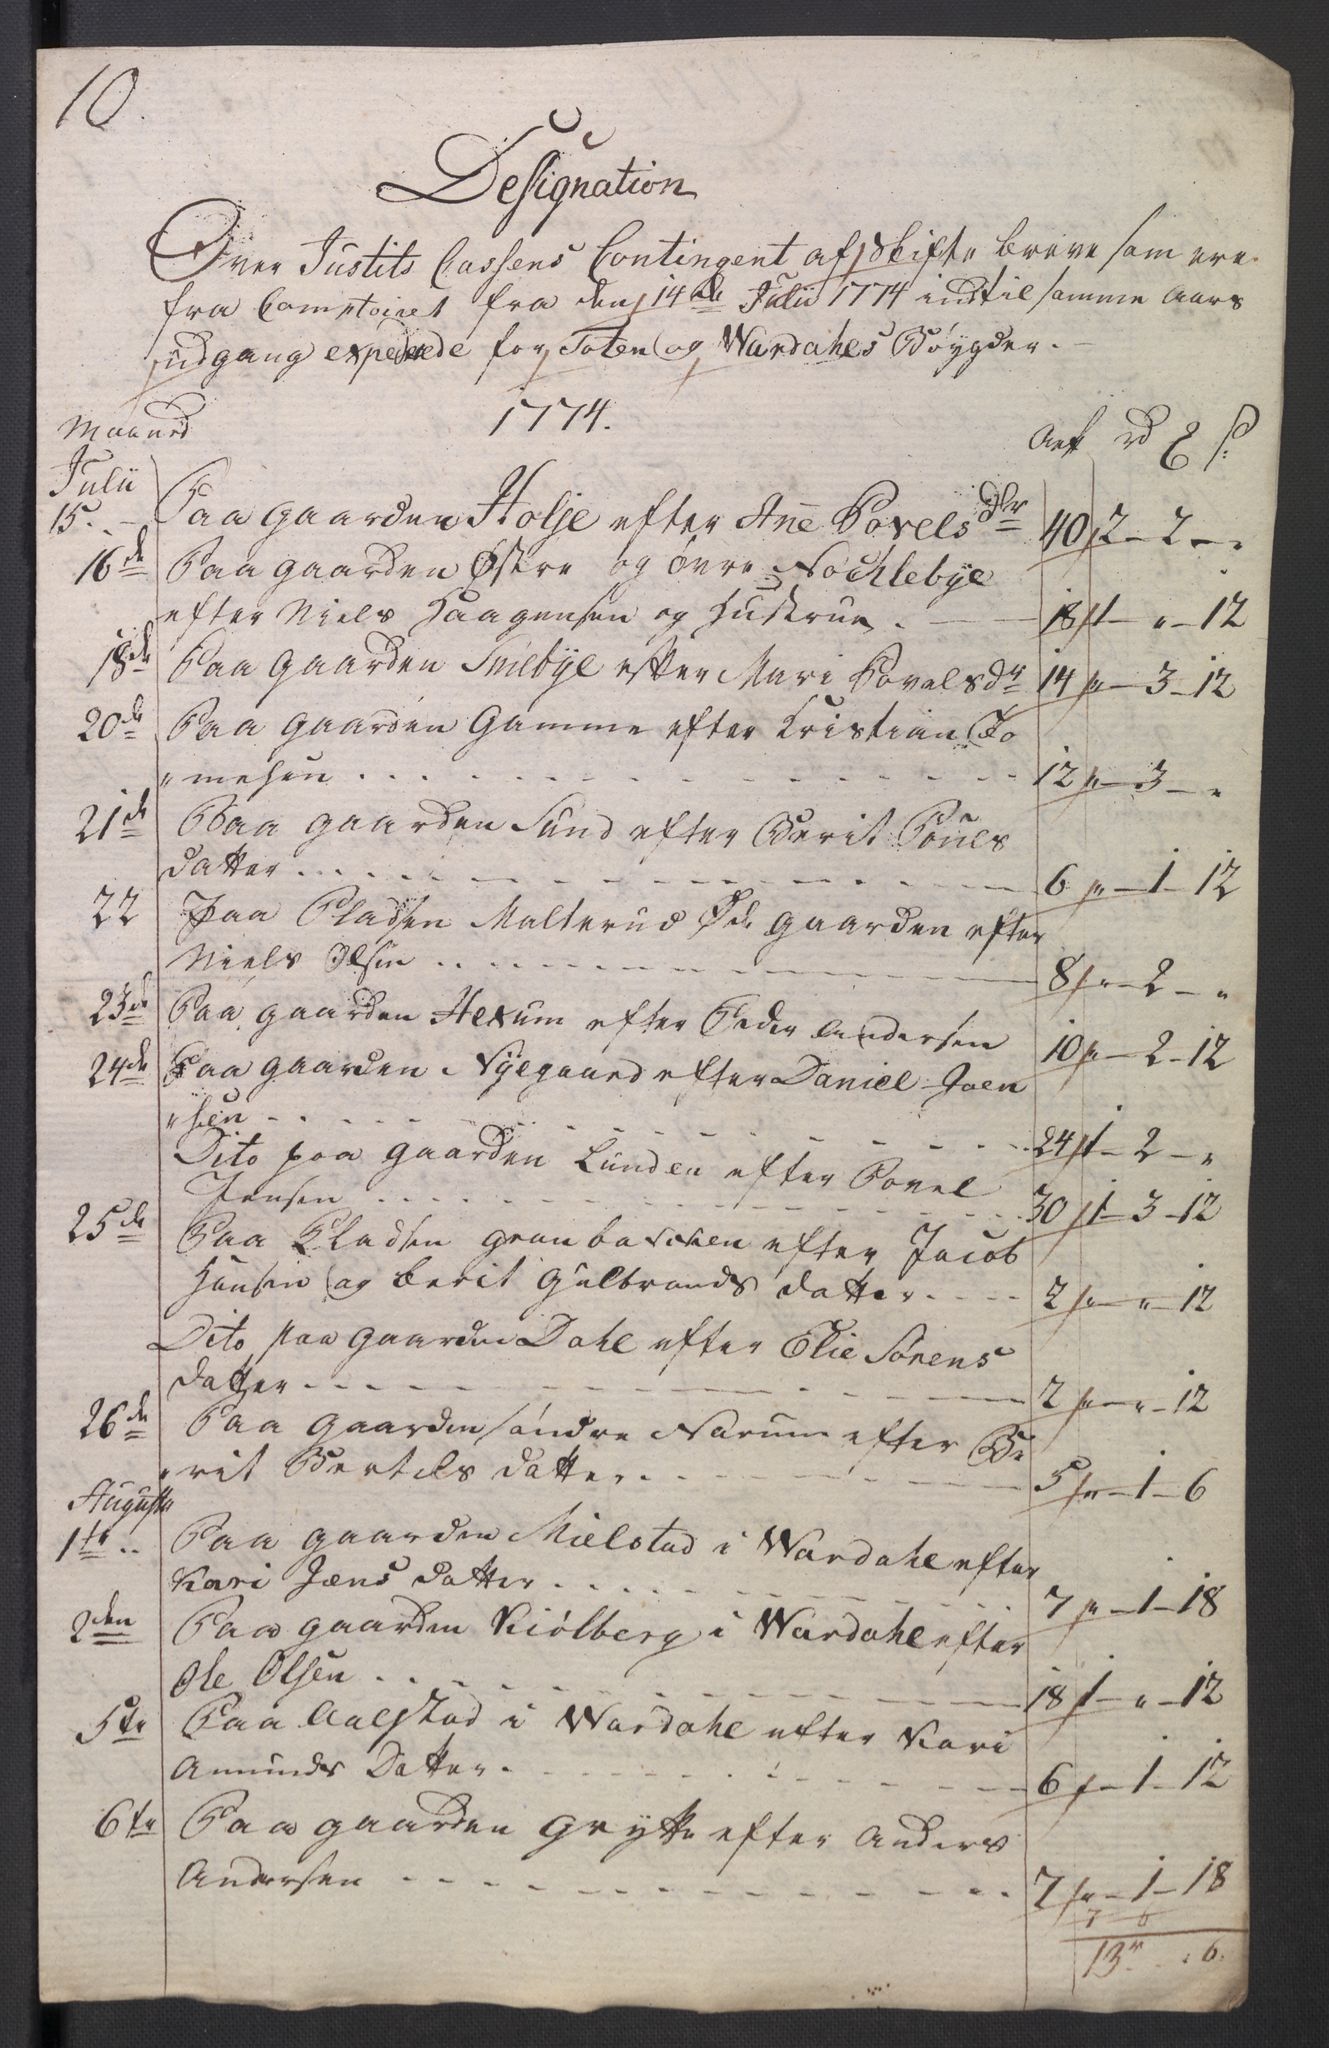 10.
Designation
Over Justits Cassens Contingent af Skifte breve som ere
fra Comptoiret fra den 14de Julii 1774 indtil samme Aars
udgang expederede for Toten og Wardahls Böygder.
1774.
Maaned Ark rd £ ß
Julii
15. Paa gaarden Holje efter Ane Povels dtr 40 2 - 2 - "
16de Paa gaarden Østre og övre Nochlebye
efter Niels Haagensen og Hustrue. 18 1 - " - 12
18de Paa gaarden Sniebye efter Mari Povels dr 14 " - 3 - 12
20de Paa gaarden Gamme efter Kristian To
"mesen 12 " - 3 - "
21de Paa gaarden Sund efter Berit Pouls
datter 6 " - 1 - 12
22 Paa Pladsen Malterud Øde gaarden efter
Niels Olsen 8 " - 2 - "
23de Paa gaarden Hexum efter Peder Andersen 10 " - 2 - 12
24de Paa gaarden Nÿegaard efter Daniel Joen
"sen 24 1 - 2 - "
Dito paa gaarden Lunden efter Povel
Jensen 30 1 - 3 - 12
25de Paa Pladsen granbachen efter Jacob
Hansen og berit Gulbrands datter 2 " - " - 12
Dito paa gaarden Dahl efter Elie Sörens
datter 2 " - " - 12
26de Paa gaarden söndre Narum efter Be
"rit Bertels datter 5 " - 1 - 6
Augusti
1te Paa gaarden Mielstad i Wardahl efter
Kari Jæns datter 7 " - 1 - 18
2den Paa gaarden Kiölberg i Wardahl efter
Ole Olsen 18 1 - " - 12
5te Paa Aalstad i Wardahl efter Kari
Amunds Datter 6 " - 1 - 12
6te Paa gaarden Grytte efter Anders
Andersen 7 " - 1 - 18
13 " . 6.